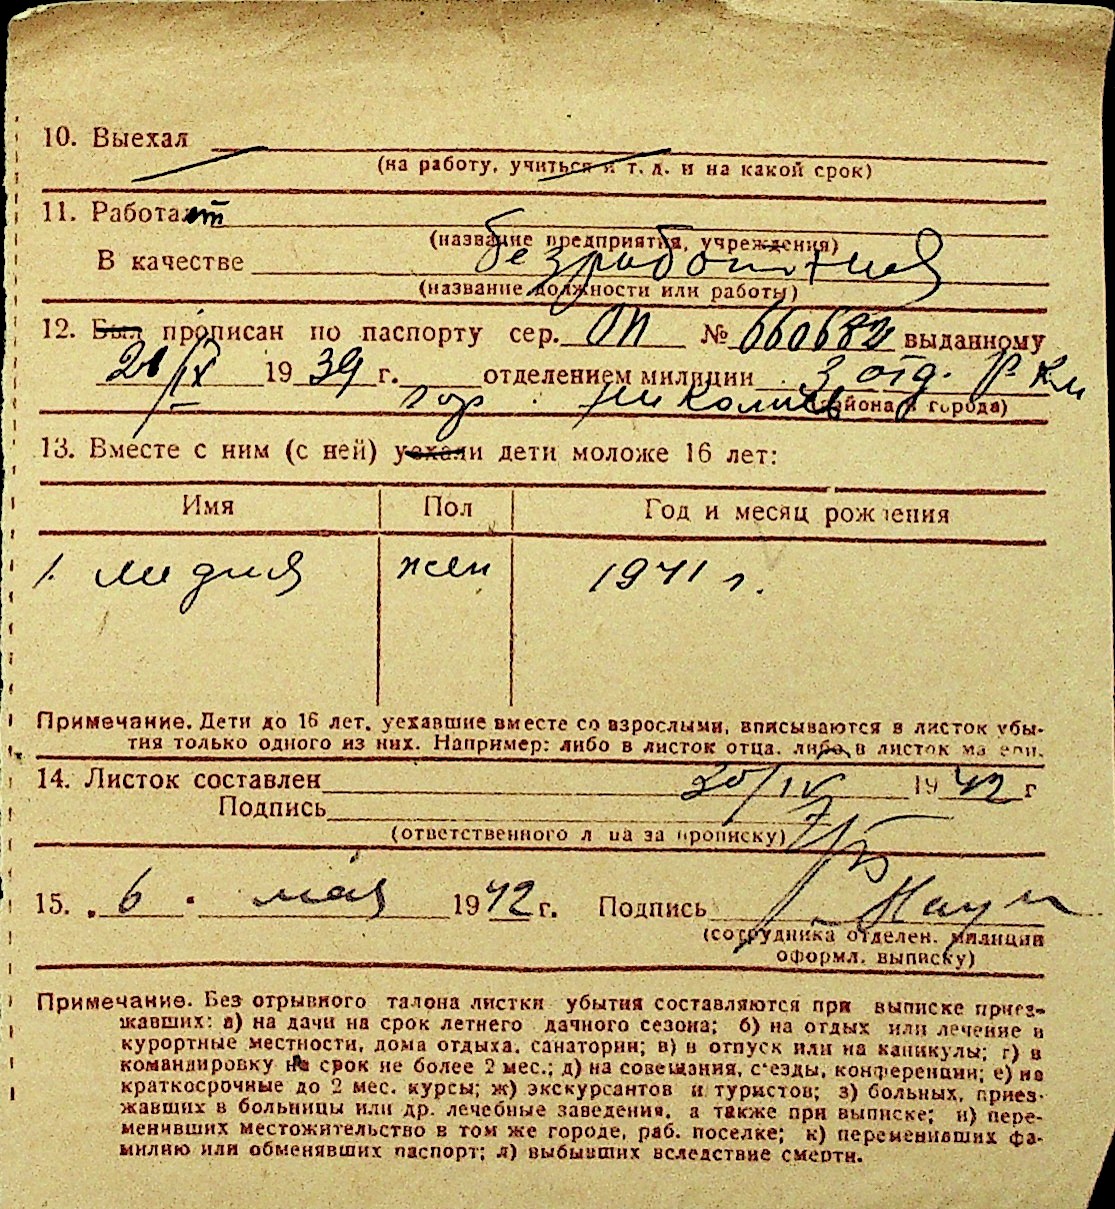 10. Выехал
(на работу, учиться и т. д. и на какой срок)
11. Работает
(название предприятия, учреждения)
В качестве безработная
(название должности или работы)
12. Был прописан по паспорту сер. ОП № 660682 выданному
21/IX 1939 г. отделением милиции 3 отд. Р К М
гор. Николаев
(района, города)
13. Вместе с ним (с ней) уехали дети моложе 16 лет:
Имя Пол Год и месяц рождения
1. Лидия жен 1941 г.
Примечание. Дети до 16 лет, уехавшие вместе со взрослыми, вписываются в листок убы-
тия только одного из них. Например: либо в листок отца, либо в листок матери.
14. Листок составлен 20/IV 1942 г
Подпись
(ответственного лица за прописку)
15. 6. мая 1942 г. Подпись
(сотрудника отделен. милиции
оформл. выписку)
Примечание. Без отрывного талона листки убытия составляются при выписке приез-
жавших: а) на дачи на срок летнего дачного сезона; б) на отдых или лечение в
курортные местности, дома отдыха, санатории; в) в отпуск или на каникулы; г) в
командировку на срок не более 2 мес.; д) на совещания, съезды, конференции; е) на
краткосрочные до 2 мес. курсы; ж) экскурсантов и туристов; з) больных, приез-
жавших в больницы или др. лечебные заведения, а также при выписке; и) пере-
менивших местожительство в том же городе, раб. поселке; к) переменивших фа-
милию или обменявших паспорт; л) выбывших вследствие смерти.